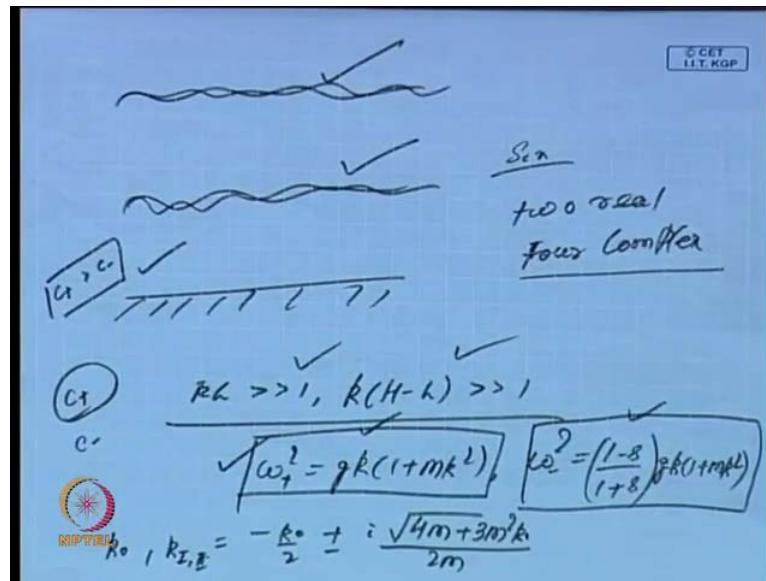 © CET
I.I.T. KGP
Six
two real
Four Complex
C+ > C-
C+
C-
kh >> 1, k(H-h) >> 1
ω₊² = gk(1+mk²), ω₋² = (1-s / 1+s) gk(1+mk²)
k₀, k_I,II = -k₀/2 ± i √4m+3m²k₀ / 2m
NPTEL